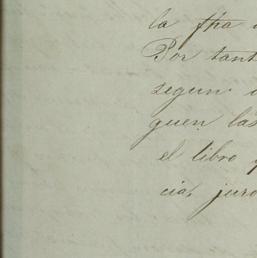 la fha
Por tant
segun
guen las
el libro y
cia, juro